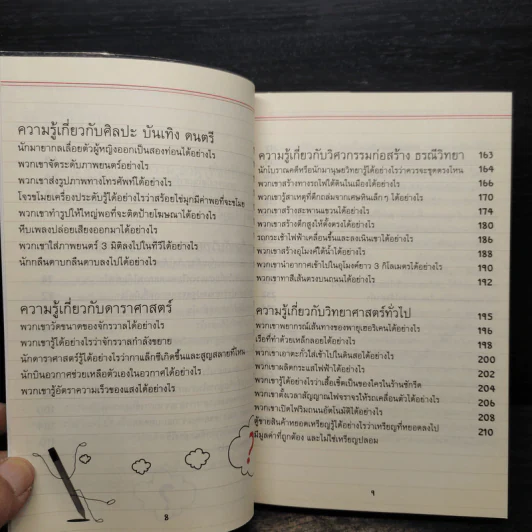 ความรู้เกี่ยวกับศิลปะ บันเทิง ดนตรี
นักมายากลเลื่อยตัวผู้หญิงออกเป็นสองท่อนได้อย่างไร
พวกเขาจัดระดับภาพยนตร์อย่างไร
พวกเขาส่งรูปภาพทางโทรศัพท์ได้อย่างไร
โจรขโมยเครื่องประดับรู้ได้อย่างไรว่าสร้อยไข่มุกมีค่าพอที่จะขโมย
พวกเขาทำรูปให้ใหญ่พอที่จะติดป้ายโฆษณาได้อย่างไร
หีบเพลงปล่อยเสียงออกมาได้อย่างไร
พวกเขาใส่ภาพยนตร์ 3 มิติลงไปในทีวีได้อย่างไร
นักกลืนดาบกลืนดาบลงไปได้อย่างไร
ความรู้เกี่ยวกับดาราศาสตร์
พวกเขาวัดขนาดของจักรวาลได้อย่างไร
พวกเขารู้ได้อย่างไรว่าจักรวาลกำลังขยาย
นักดาราศาสตร์รู้ได้อย่างไรว่ากาแล็กซีเกิดขึ้นและสูญสลายที่ไหน
นักบินอวกาศช่วยเหลือตัวเองในอวกาศได้อย่างไร
พวกเขารู้อัตราความเร็วของแสงได้อย่างไร
8
ความรู้เกี่ยวกับวิศวกรรมก่อสร้าง ธรณีวิทยา 163
นักโบราณคดีหรือนักมานุษยวิทยารู้ได้อย่างไรว่าควรจะขุดตรงไหน 164
พวกเขาสร้างทางรถไฟใต้ดินในเมืองได้อย่างไร 166
พวกเขารู้สาเหตุที่ตึกถล่มจากเศษหินเล็กๆ ได้อย่างไร 170
พวกเขาสร้างสะพานแขวนได้อย่างไร 174
พวกเขาสร้างตึกสูงให้ตั้งตรงได้อย่างไร 180
รถกระเช้าไฟฟ้าเคลื่อนขึ้นและลงเนินเขาได้อย่างไร 186
พวกเขาสร้างอุโมงค์ใต้น้ำได้อย่างไร 188
พวกเขานำอากาศเข้าไปในอุโมงค์ยาว 3 กิโลเมตรได้อย่างไร 190
พวกเขาทาสีเส้นตรงบนถนนได้อย่างไร 192
ความรู้เกี่ยวกับวิทยาศาสตร์ทั่วไป 195
พวกเขาพยากรณ์เส้นทางของพายุเฮอริเคนได้อย่างไร 196
เรือที่ทำด้วยเหล็กลอยได้อย่างไร 198
พวกเขาเอาตะกั่วใส่เข้าไปในดินสอได้อย่างไร 200
พวกเขาผลิตกระแสไฟฟ้าได้อย่างไร 202
พวกเขารู้ได้อย่างไรว่าเสื้อเชิ้ตเป็นของใครในร้านซักรีด 204
พวกเขาตั้งเวลาสัญญาณไฟจราจรให้รถเคลื่อนตัวได้อย่างไร 206
พวกเขาเปิดไฟริมถนนอัตโนมัติได้อย่างไร 208
ตู้ขายสินค้าหยอดเหรียญรู้ได้อย่างไรว่าเหรียญที่หยอดลงไป 210
มีมูลค่าที่ถูกต้อง และไม่ใช่เหรียญปลอม
๑